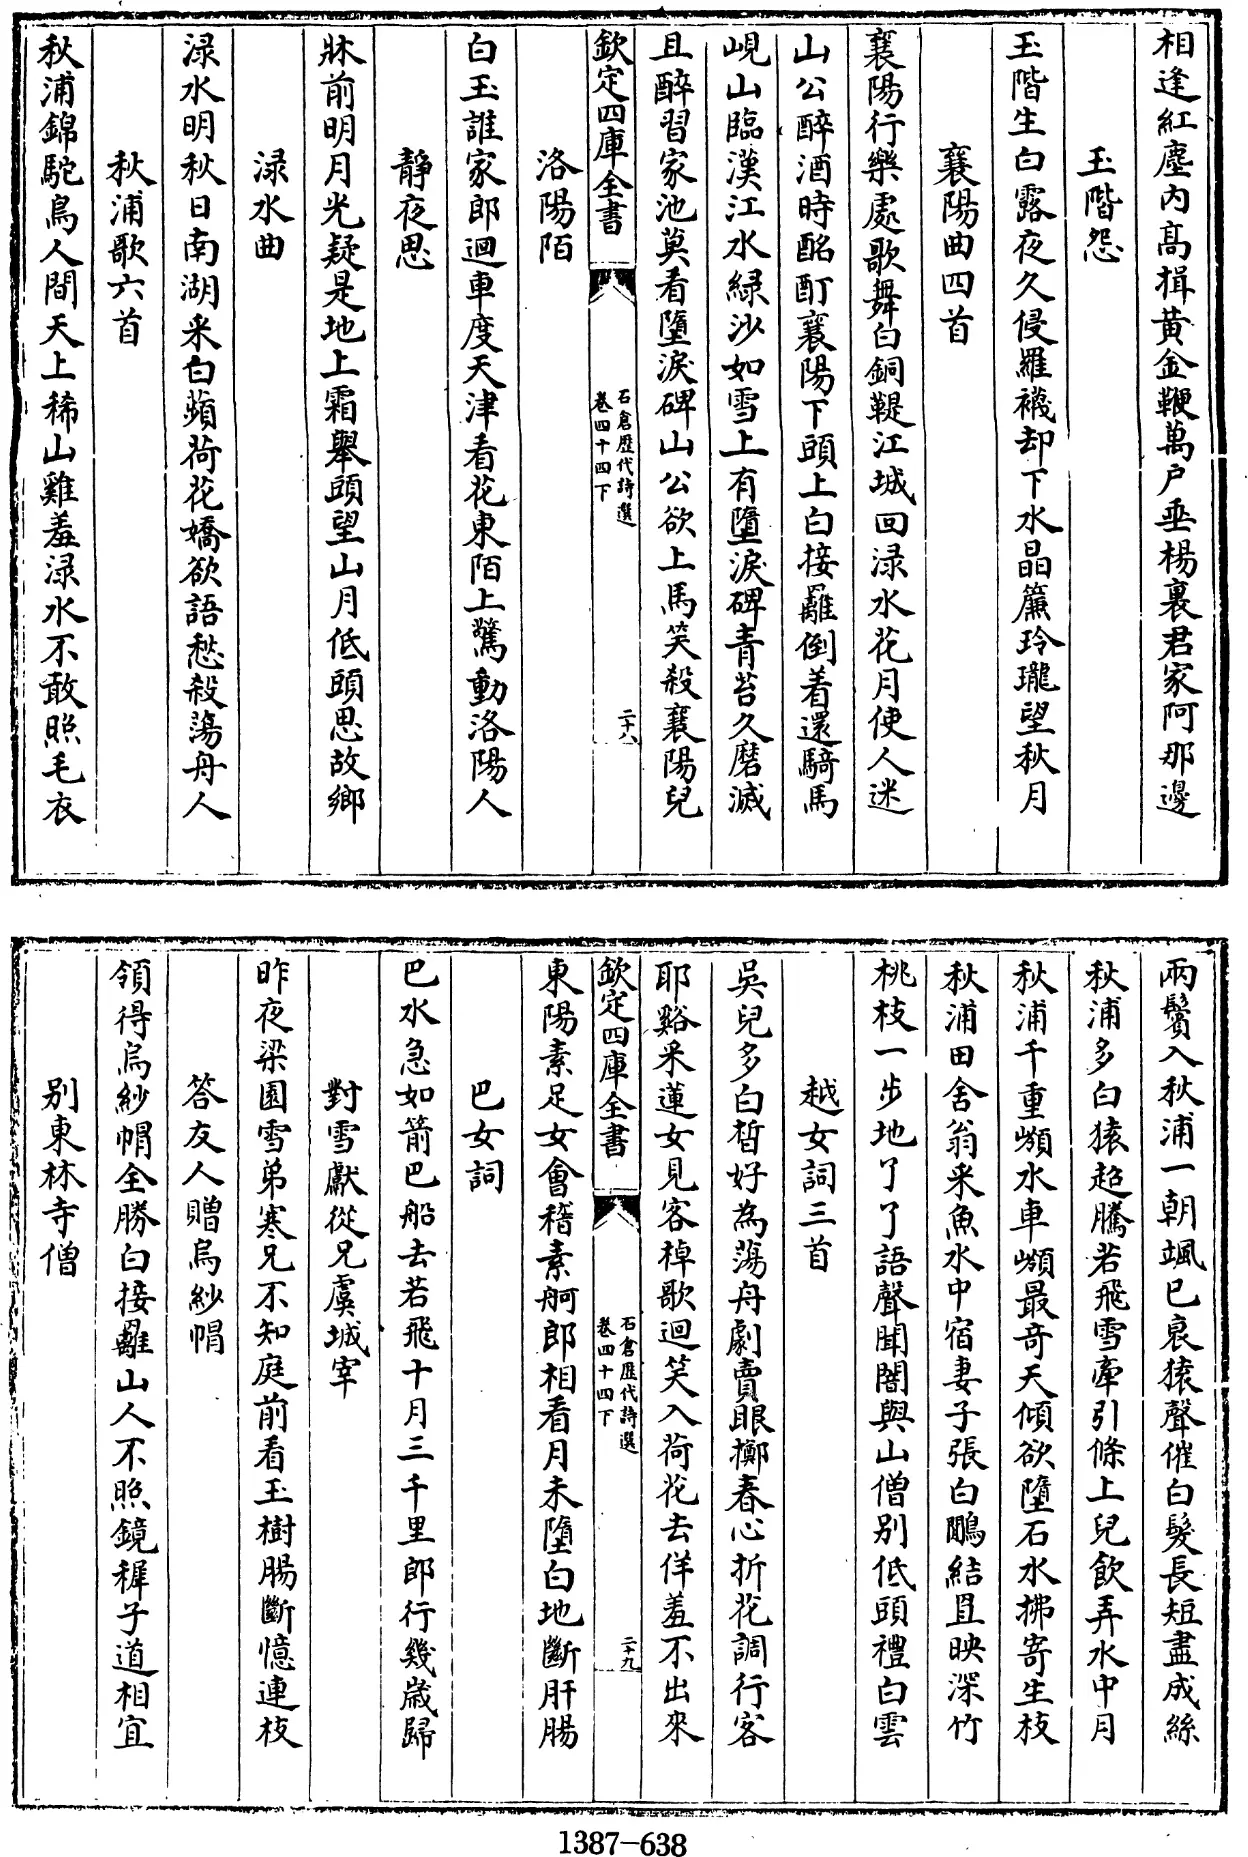 相逢紅塵内髙揖黄金鞭萬户垂楊裏君家阿那邊
玉階怨
玉階生白露夜久侵羅襪却下水晶簾玲瓏望秋月
襄陽曲四首
襄陽行樂處歌舞白銅鞮江城回渌水花月使人迷
山公醉酒時酩酊襄陽下頭上白接䍦倒着還騎馬
峴山臨漢江水緑沙如雪上有墮淚碑青苔久磨滅
且醉習家池莫看墮淚碑山公欲上馬笑殺襄陽兒
欽定四庫全書
石倉歴代詩選
卷四十四下
二十八
洛陽陌
白玉誰家郎迴車度天津看花東陌上驚動洛陽人
靜夜思
牀前明月光疑是地上霜舉頭望山月低頭思故鄉
渌水曲
渌水明秋日南湖采白蘋荷花嬌欲語愁殺蕩舟人
秋浦歌六首
秋浦錦駝鳥人間天上稀山雞羞渌水不敢照毛衣
兩鬢入秋浦一朝颯已衰猿聲催白髮長短盡成絲
秋浦多白猿超騰若飛雪牽引條上兒飲弄水中月
秋浦千重嶺水車嶺最奇天傾欲墮石水拂寄生枝
秋浦田舍翁采魚水中宿妻子張白鷴結罝映深竹
桃枝一步地了了語聲聞闇與山僧别低頭禮白雲
越女詞三首
吳兒多白皙好為蕩舟劇賣眼擲春心折花調行客
耶谿采蓮女見客棹歌迴笑入荷花去佯羞不出來
欽定四庫全書
石倉歴代詩選
卷四十四下
二十九
東陽素足女會稽素舸郎相看月未墮白地斷肝腸
巴女詞
巴水急如箭巴船去若飛十月三千里郎行幾嵗歸
對雪獻從兄虞城宰
昨夜梁園雪弟寒兄不知庭前看玉樹腸斷憶連枝
答友人贈烏紗帽
領得烏紗帽全勝白接䍦山人不照鏡穉子道相宜
别東林寺僧
1387-638